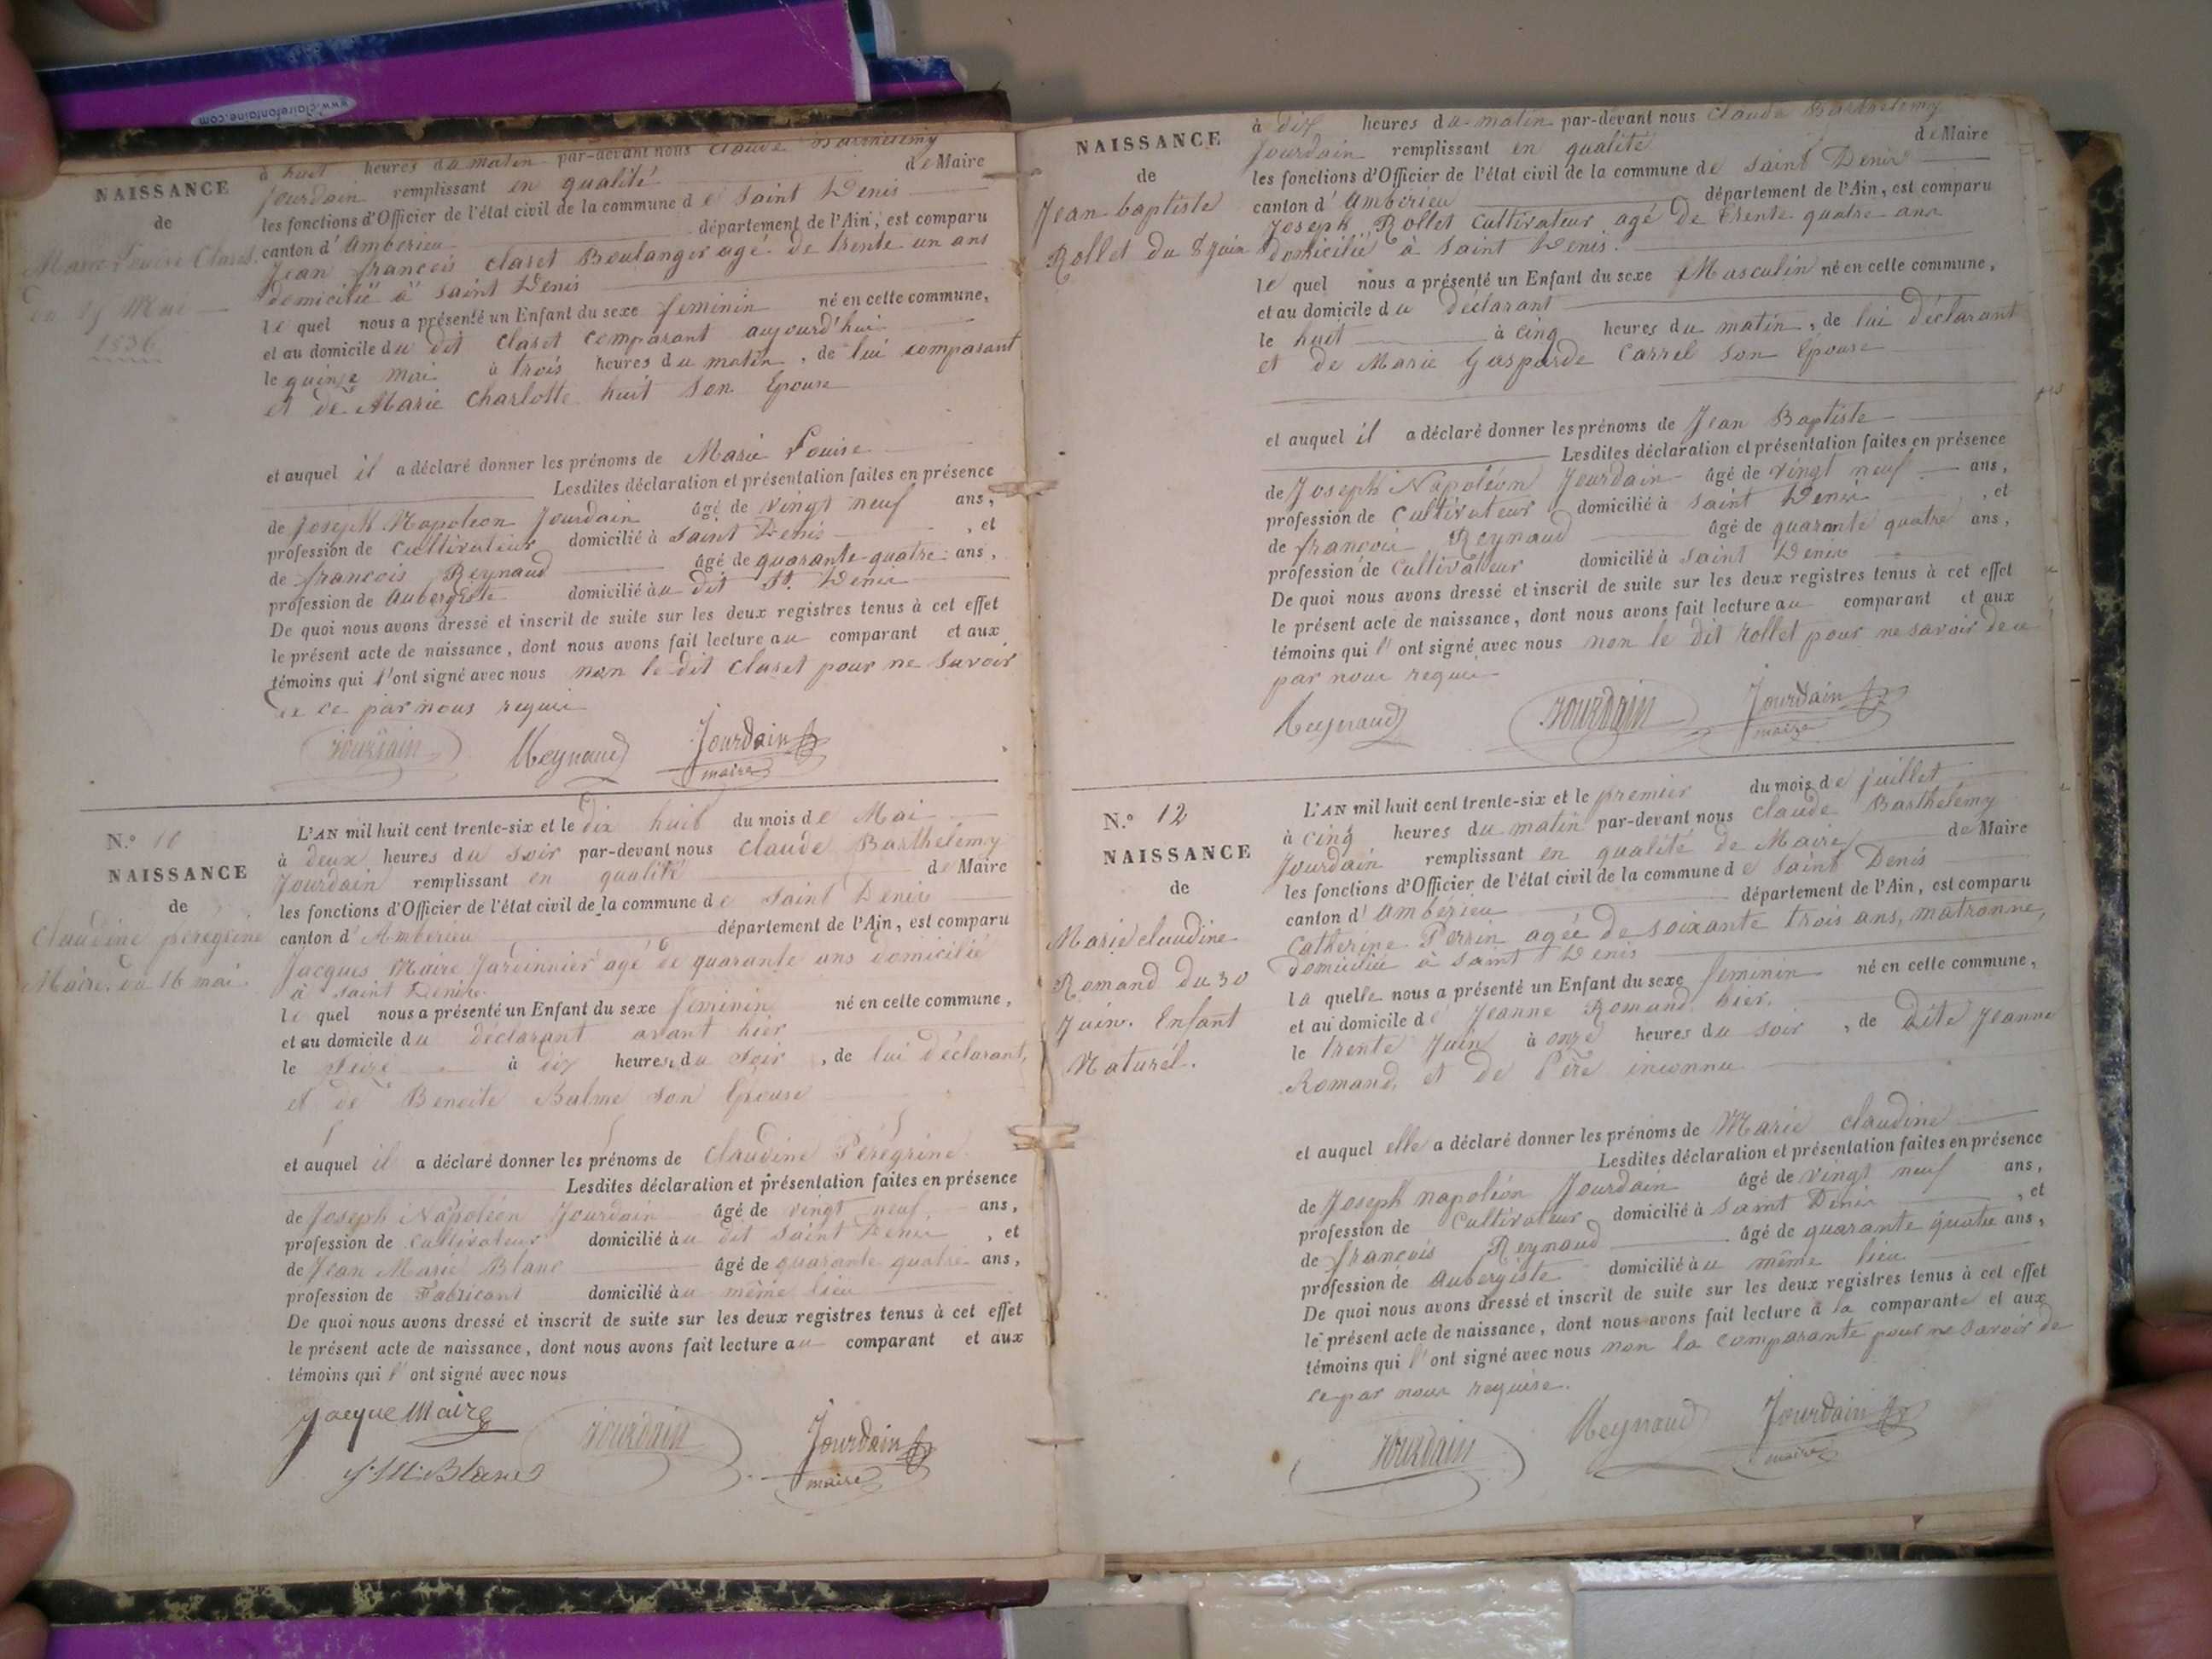 www.clairefontaine.com
NAISSANCE
de
Marie Louise Claret
du 15 Mai
1836
à huit heures du matin par-devant nous Claude Barthelemy
Jourdain remplissant en qualité de Maire
les fonctions d'Officier de l'état civil de la commune de Saint Denis
canton d'Amberieu département de l'Ain, est comparu
Jean françois Claret Boulanger agé de trente un ans
domicilié à Saint Denis
le quel nous a présenté un Enfant du sexe feminin né en cette commune,
et au domicile du dit Claret comparant aujourd'hui
le quinze mai à trois heures du matin, de lui comparant
et de Marie Charlotte huit son Epouse
et auquel il a déclaré donner les prénoms de Marie Louise
Lesdites déclaration et présentation faites en présence
de Joseph Napoleon Jourdain âgé de vingt neuf ans,
profession de Cultivateur domicilié à Saint Denis, et
de françois Reynaud âgé de quarante-quatre ans,
profession de Aubergiste domicilié au dit St. Denis
De quoi nous avons dressé et inscrit de suite sur les deux registres tenus à cet effet
le présent acte de naissance, dont nous avons fait lecture au comparant et aux
témoins qui l'ont signé avec nous non le dit Claret pour ne savoir
de ce par nous requis
Jourdain Reynaud Jourdain
maire
N.º 10
NAISSANCE
de
Claudine peregrine
Maire, du 16 mai
L'AN mil huit cent trente-six et le dix huit du mois de Mai
à deux heures du soir par-devant nous Claude Barthelemy
Jourdain remplissant en qualité de Maire
les fonctions d'Officier de l'état civil de la commune de Saint Denis
canton d'Amberieu département de l'Ain, est comparu
Jacques Maire Jardinnier agé de quarante ans domicilié
à Saint Denis
le quel nous a présenté un Enfant du sexe feminin né en cette commune,
et au domicile du déclarant avant hier
le seize à dix heures du soir, de lui déclarant,
et de Benoite Balme son Epouse
et auquel il a déclaré donner les prénoms de Claudine Pérégrine
Lesdites déclaration et présentation faites en présence
de Joseph Napoléon Jourdain âgé de vingt neuf ans,
profession de Cultivateur domicilié au dit Saint Denis, et
de Jean Marie Blanc âgé de quarante quatre ans,
profession de Fabricant domicilié au même lieu
De quoi nous avons dressé et inscrit de suite sur les deux registres tenus à cet effet
le présent acte de naissance, dont nous avons fait lecture au comparant et aux
témoins qui l'ont signé avec nous
Jacque Maire Jourdain Jourdain
J. M. Blanc maire
NAISSANCE
de
Jean baptiste
Rollet du 8 juin
à dix heures du matin par-devant nous Claude Barthelemy
Jourdain remplissant en qualité de Maire
les fonctions d'Officier de l'état civil de la commune de Saint Denis
canton d'Amberieu département de l'Ain, est comparu
Joseph Rollet Cultivateur agé de trente quatre ans
domicilié à Saint Denis.
le quel nous a présenté un Enfant du sexe Masculin né en cette commune,
et au domicile du déclarant
le huit à cinq heures du matin, de lui déclarant
et de Marie Gasparde Carrel son Epouse
et auquel il a déclaré donner les prénoms de Jean Baptiste
Lesdites déclaration et présentation faites en présence
de Joseph Napoléon Jourdain âgé de vingt neuf ans,
profession de Cultivateur domicilié à Saint Denis, et
de françois Reynaud âgé de quarante quatre ans,
profession de Cultivateur domicilié à Saint Denis
De quoi nous avons dressé et inscrit de suite sur les deux registres tenus à cet effet
le présent acte de naissance, dont nous avons fait lecture au comparant et aux
témoins qui l'ont signé avec nous non le dit Rollet pour ne savoir de ce
par nous requis
Reynaud Jourdain Jourdain
maire
N.º 12
NAISSANCE
de
Marie claudine
Romand du 30
Juin. Enfant
Naturel.
L'AN mil huit cent trente-six et le premier du mois de juillet
à cinq heures du matin par-devant nous Claude Barthelemy
Jourdain remplissant en qualité de Maire de Maire
les fonctions d'Officier de l'état civil de la commune de Saint Denis
canton d'Ambérieu département de l'Ain, est comparu
Catherine Perrin agée de soixante trois ans, matronne,
domiciliée à Saint Denis
la quelle nous a présenté un Enfant du sexe feminin né en cette commune,
et au domicile de Jeanne Romand, hier,
le trente Juin à onze heures du soir, de dite Jeanne
Romand, et de Père inconnu
et auquel elle a déclaré donner les prénoms de Marie claudine
Lesdites déclaration et présentation faites en présence
de Joseph napoléon Jourdain âgé de vingt neuf ans,
profession de Cultivateur domicilié à Saint Denis, et
de françois Reynaud âgé de quarante quatre ans,
profession de Aubergiste domicilié au même lieu
De quoi nous avons dressé et inscrit de suite sur les deux registres tenus à cet effet
le présent acte de naissance, dont nous avons fait lecture à la comparante et aux
témoins qui l'ont signé avec nous non la comparante pour ne savoir de
ce par nous requise.
Jourdain Reynaud Jourdain
maire